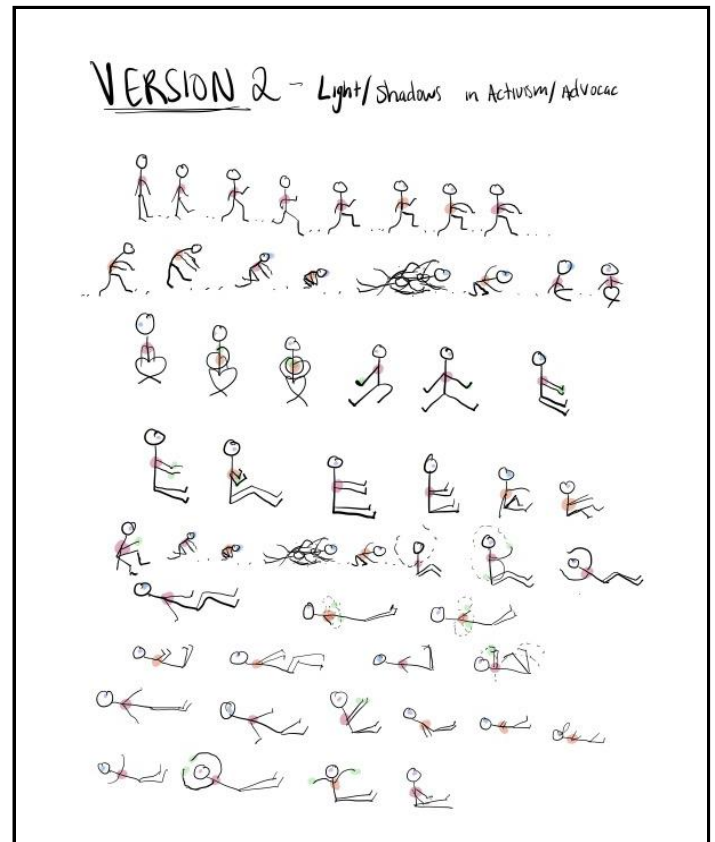 VERSION 2 - Light/Shadows in Activism/Advocac